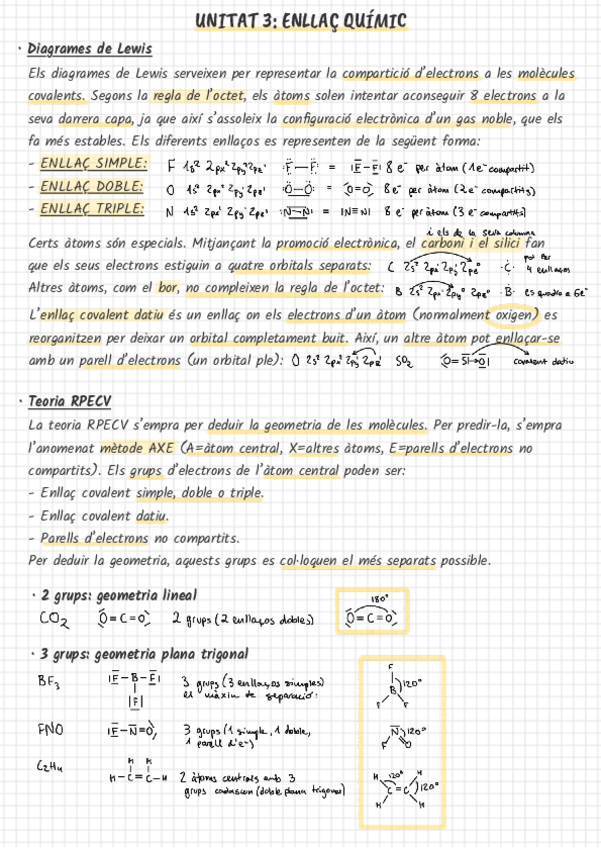 UNITAT 3: ENLLAÇ QUÍMIC
· Diagrames de Lewis
Els diagrames de Lewis serveixen per representar la compartició d'electrons a les molècules
covalents. Segons la regla de l'octet, els àtoms solen intentar aconseguir 8 electrons a la
seva darrera capa, ja que així s'assoleix la configuració electrònica d'un gas noble, que els
fa més estables. Els diferents enllaços es representen de la següent forma:
- ENLLAÇ SIMPLE: F 1s² 2px² 2py² 2pz¹ :F—F: = |F—F| 8 e⁻ per àtom (1e⁻ compartit)
- ENLLAÇ DOBLE: O 1s² 2px² 2py¹ 2pz¹ :O=O: = O=O 8e⁻ per àtom (2e⁻ compartits)
- ENLLAÇ TRIPLE: N 1s² 2px¹ 2py¹ 2pz¹ :N≡N: = |N≡N| 8 e⁻ per àtom (3 e⁻ compartits)
i els de la seva columna
Certs àtoms són especials. Mitjançant la promoció electrònica, el carboni i el silici fan
que els seus electrons estiguin a quatre orbitals separats: C 2s² 2px¹ 2py¹ 2pz⁰ ·C· pot fer 4 enllaços
Altres àtoms, com el bor, no compleixen la regla de l'octet: B 2s² 2px¹ 2py⁰ 2pz⁰ ·B· es queda a 6e⁻
L'enllaç covalent datiu és un enllaç on els electrons d'un àtom (normalment oxigen) es
reorganitzen per deixar un orbital completament buit. Així, un altre àtom pot enllaçar-se
amb un parell d'electrons (un orbital ple): O 2s² 2px² 2py¹ 2pz¹ SO₂ O=S→O| covalent datiu
· Teoria RPECV
La teoria RPECV s'empra per deduir la geometria de les molècules. Per predir-la, s'empra
l'anomenat mètode AXE (A=àtom central, X=altres àtoms, E=parells d'electrons no
compartits). Els grups d'electrons de l'àtom central poden ser:
- Enllaç covalent simple, doble o triple.
- Enllaç covalent datiu.
- Parells d'electrons no compartits.
Per deduir la geometria, aquests grups es col·loquen el més separats possible.
· 2 grups: geometria lineal
180°
CO₂ O=C=O 2 grups (2 enllaços dobles) O=C=O
· 3 grups: geometria plana trigonal
BF₃ |F—B—F| 3 grups (3 enllaços simples)
|F| el màxim de separació:
F B F F 120°
FNO |F—N=O 3 grups (1 simple, 1 doble,
1 parell d'e⁻)
N F O 120°
C₂H₄ H H
H—C=C—H 2 àtoms centrals amb 3
grups cadascun (doble plana trigonal)
H H C=C H H 120° 120°